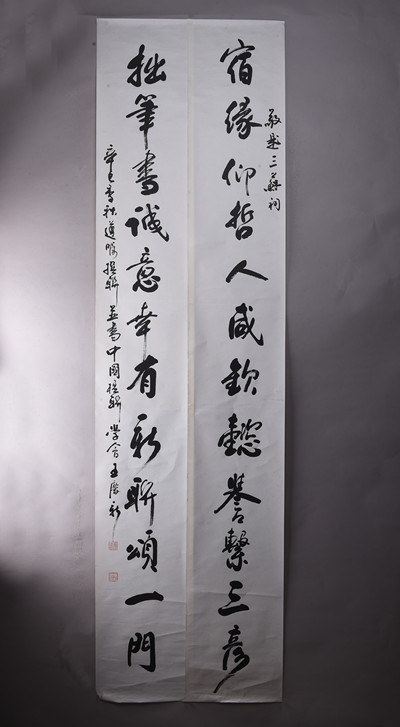 敬題三蘇祠
宿緣仰哲人咸欽懿譽繫三彥
拙筆書誠意幸有新聯頌一門
辛巳季秋遵嘱撰聯並書中國楹聯學會王慶新